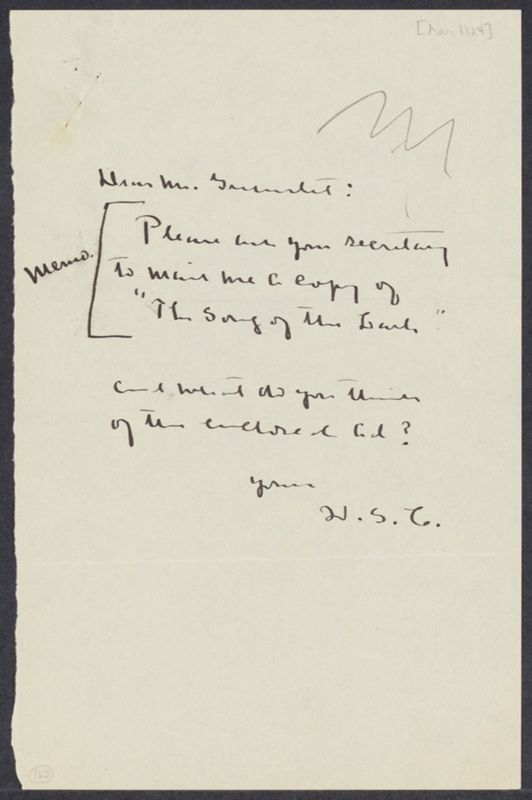 [Mar 1924]
Dear Mr. Greenslet:
Memo.
Please ask your secretary
to mail me a copy of
"The Song of the Lark"
and what do you think
of the enclosed ad?
yours
W. S. C.
162